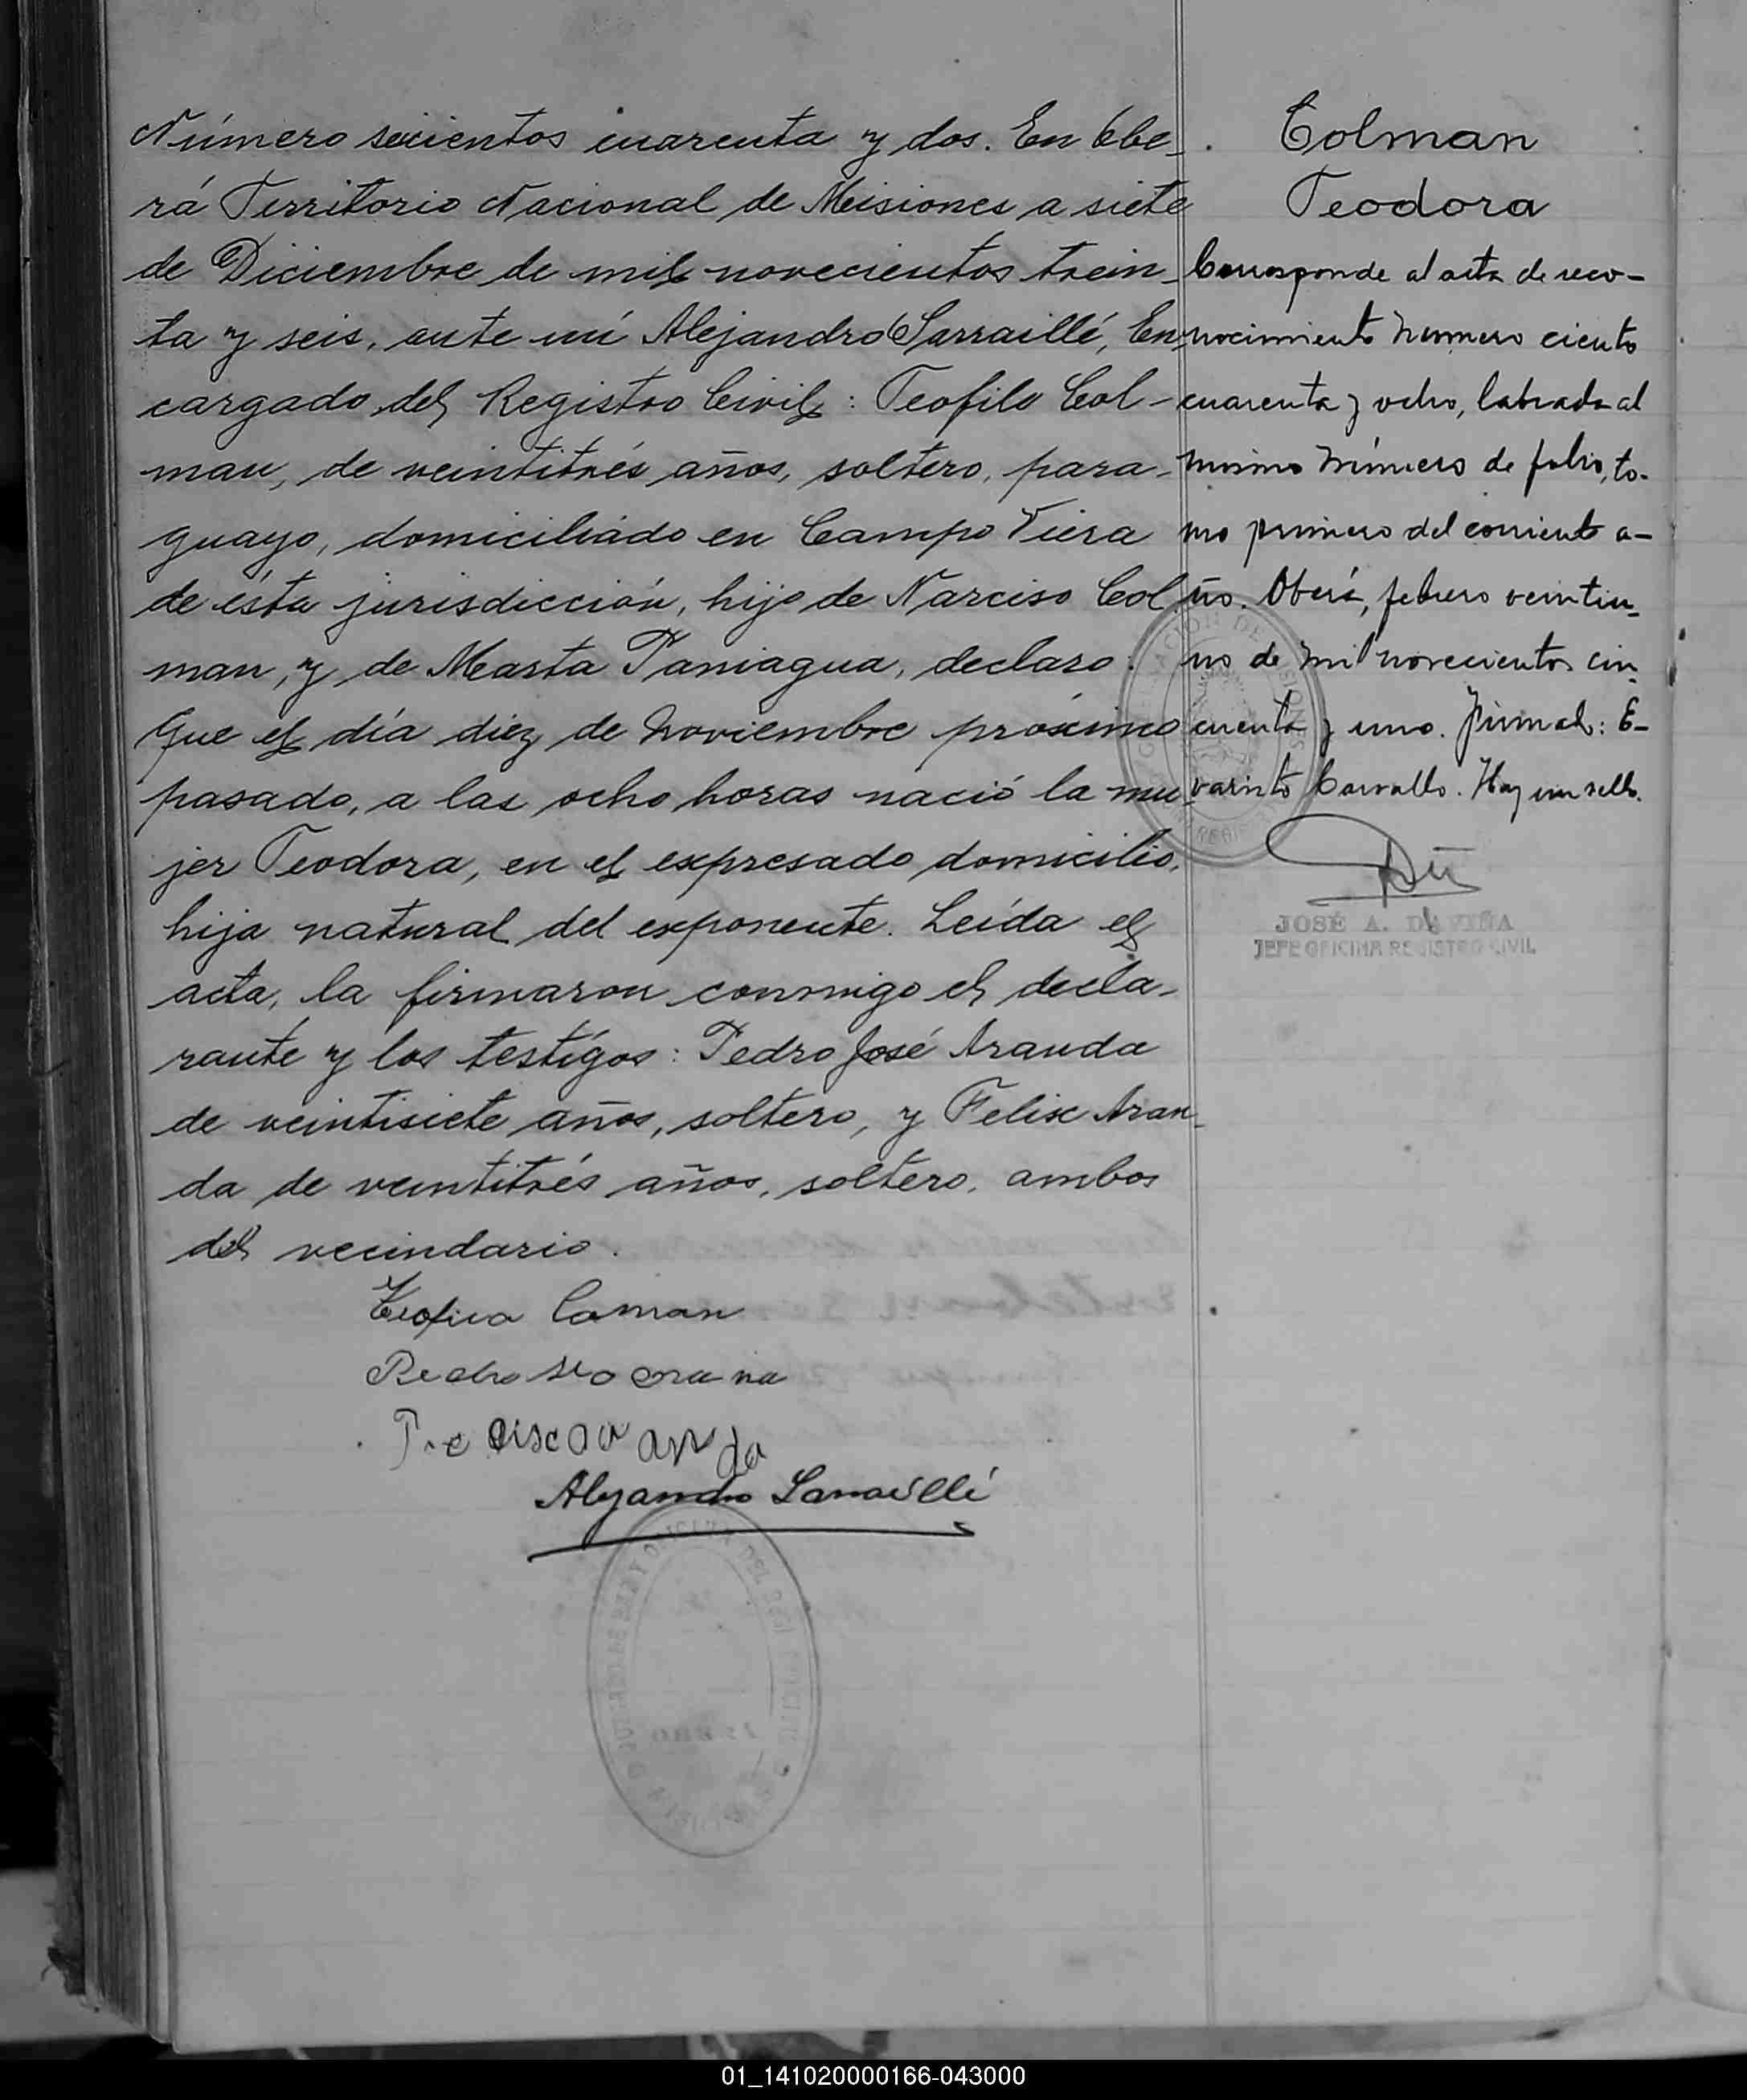 Número seicientos cuarenta y dos. En Obe-
rá Territorio Nacional de Misiones a siete
de Diciembre de mil novecientos trein-
ta y seis, ante mí Alejandro Sarraillé, En-
cargado del Registro Civil: Teofilo Col-
man, de veintitrés años, soltero, para-
guayo, domiciliado en Campo Viera
de ésta jurisdicción, hijo de Narciso Col
man, y de Marta Paniagua, declaro:
Que el día diez de Noviembre próximo
pasado, a las ocho horas nació la mu
jer Teodora, en el expresado domicilio,
hija natural del exponente. Leída el
acta, la firmaron conmigo el decla-
rante y los testígos: Pedro José Aranda
de veintisiete años, soltero, y Felix Aran-
da de veintitrés años, soltero, ambos
del vecindario.
Colman
Teodora
Corresponde al acta de reco-
nocimiento número ciento
cuarenta y ocho, labrada al
mismo número de folio, to-
mo primero del corriente a-
ño. Oberá, febrero veintiu-
no de mil novecientos cin-
cuenta y uno. Firmado: E-
varisto Carvallo. Hay un sello.
JOSÉ A. DA VIÑA
JEFE OFICINA REGISTRO CIVIL
Teofilo Colman
Pedro
Alejandro Sarraillé
01_141020000166-043000